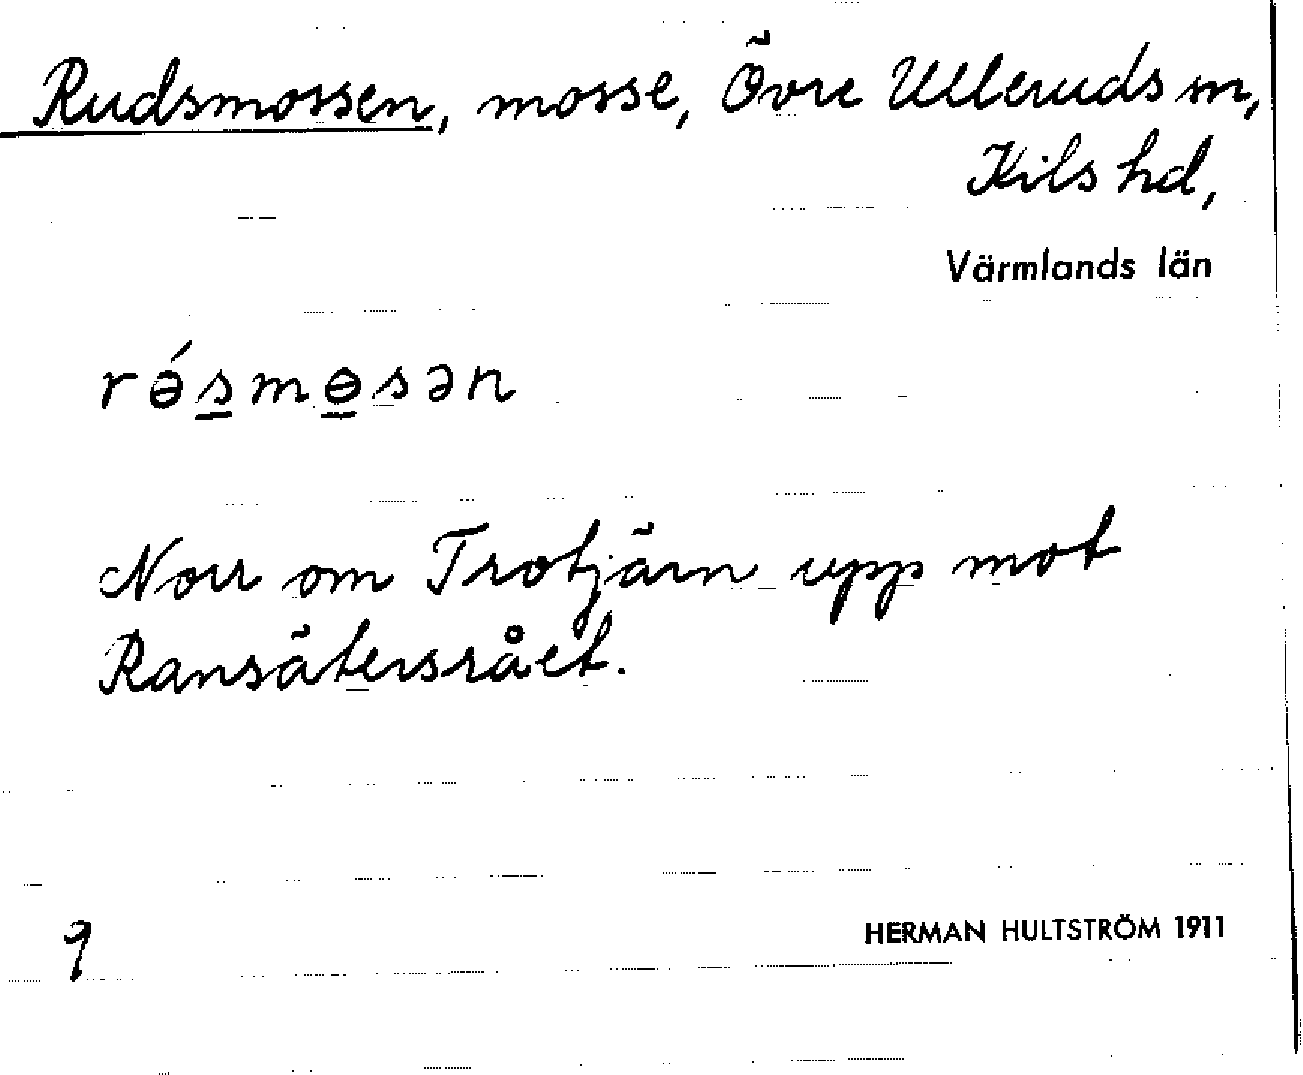 Rudsmossen, mosse, Övre Ulleruds sn,
Kils hd,
Värmlands län
rɵ́smɵsən
Norr om Trotjärn upp mot
Ransätersrået.
9
HERMAN HULTSTRÖM 1911